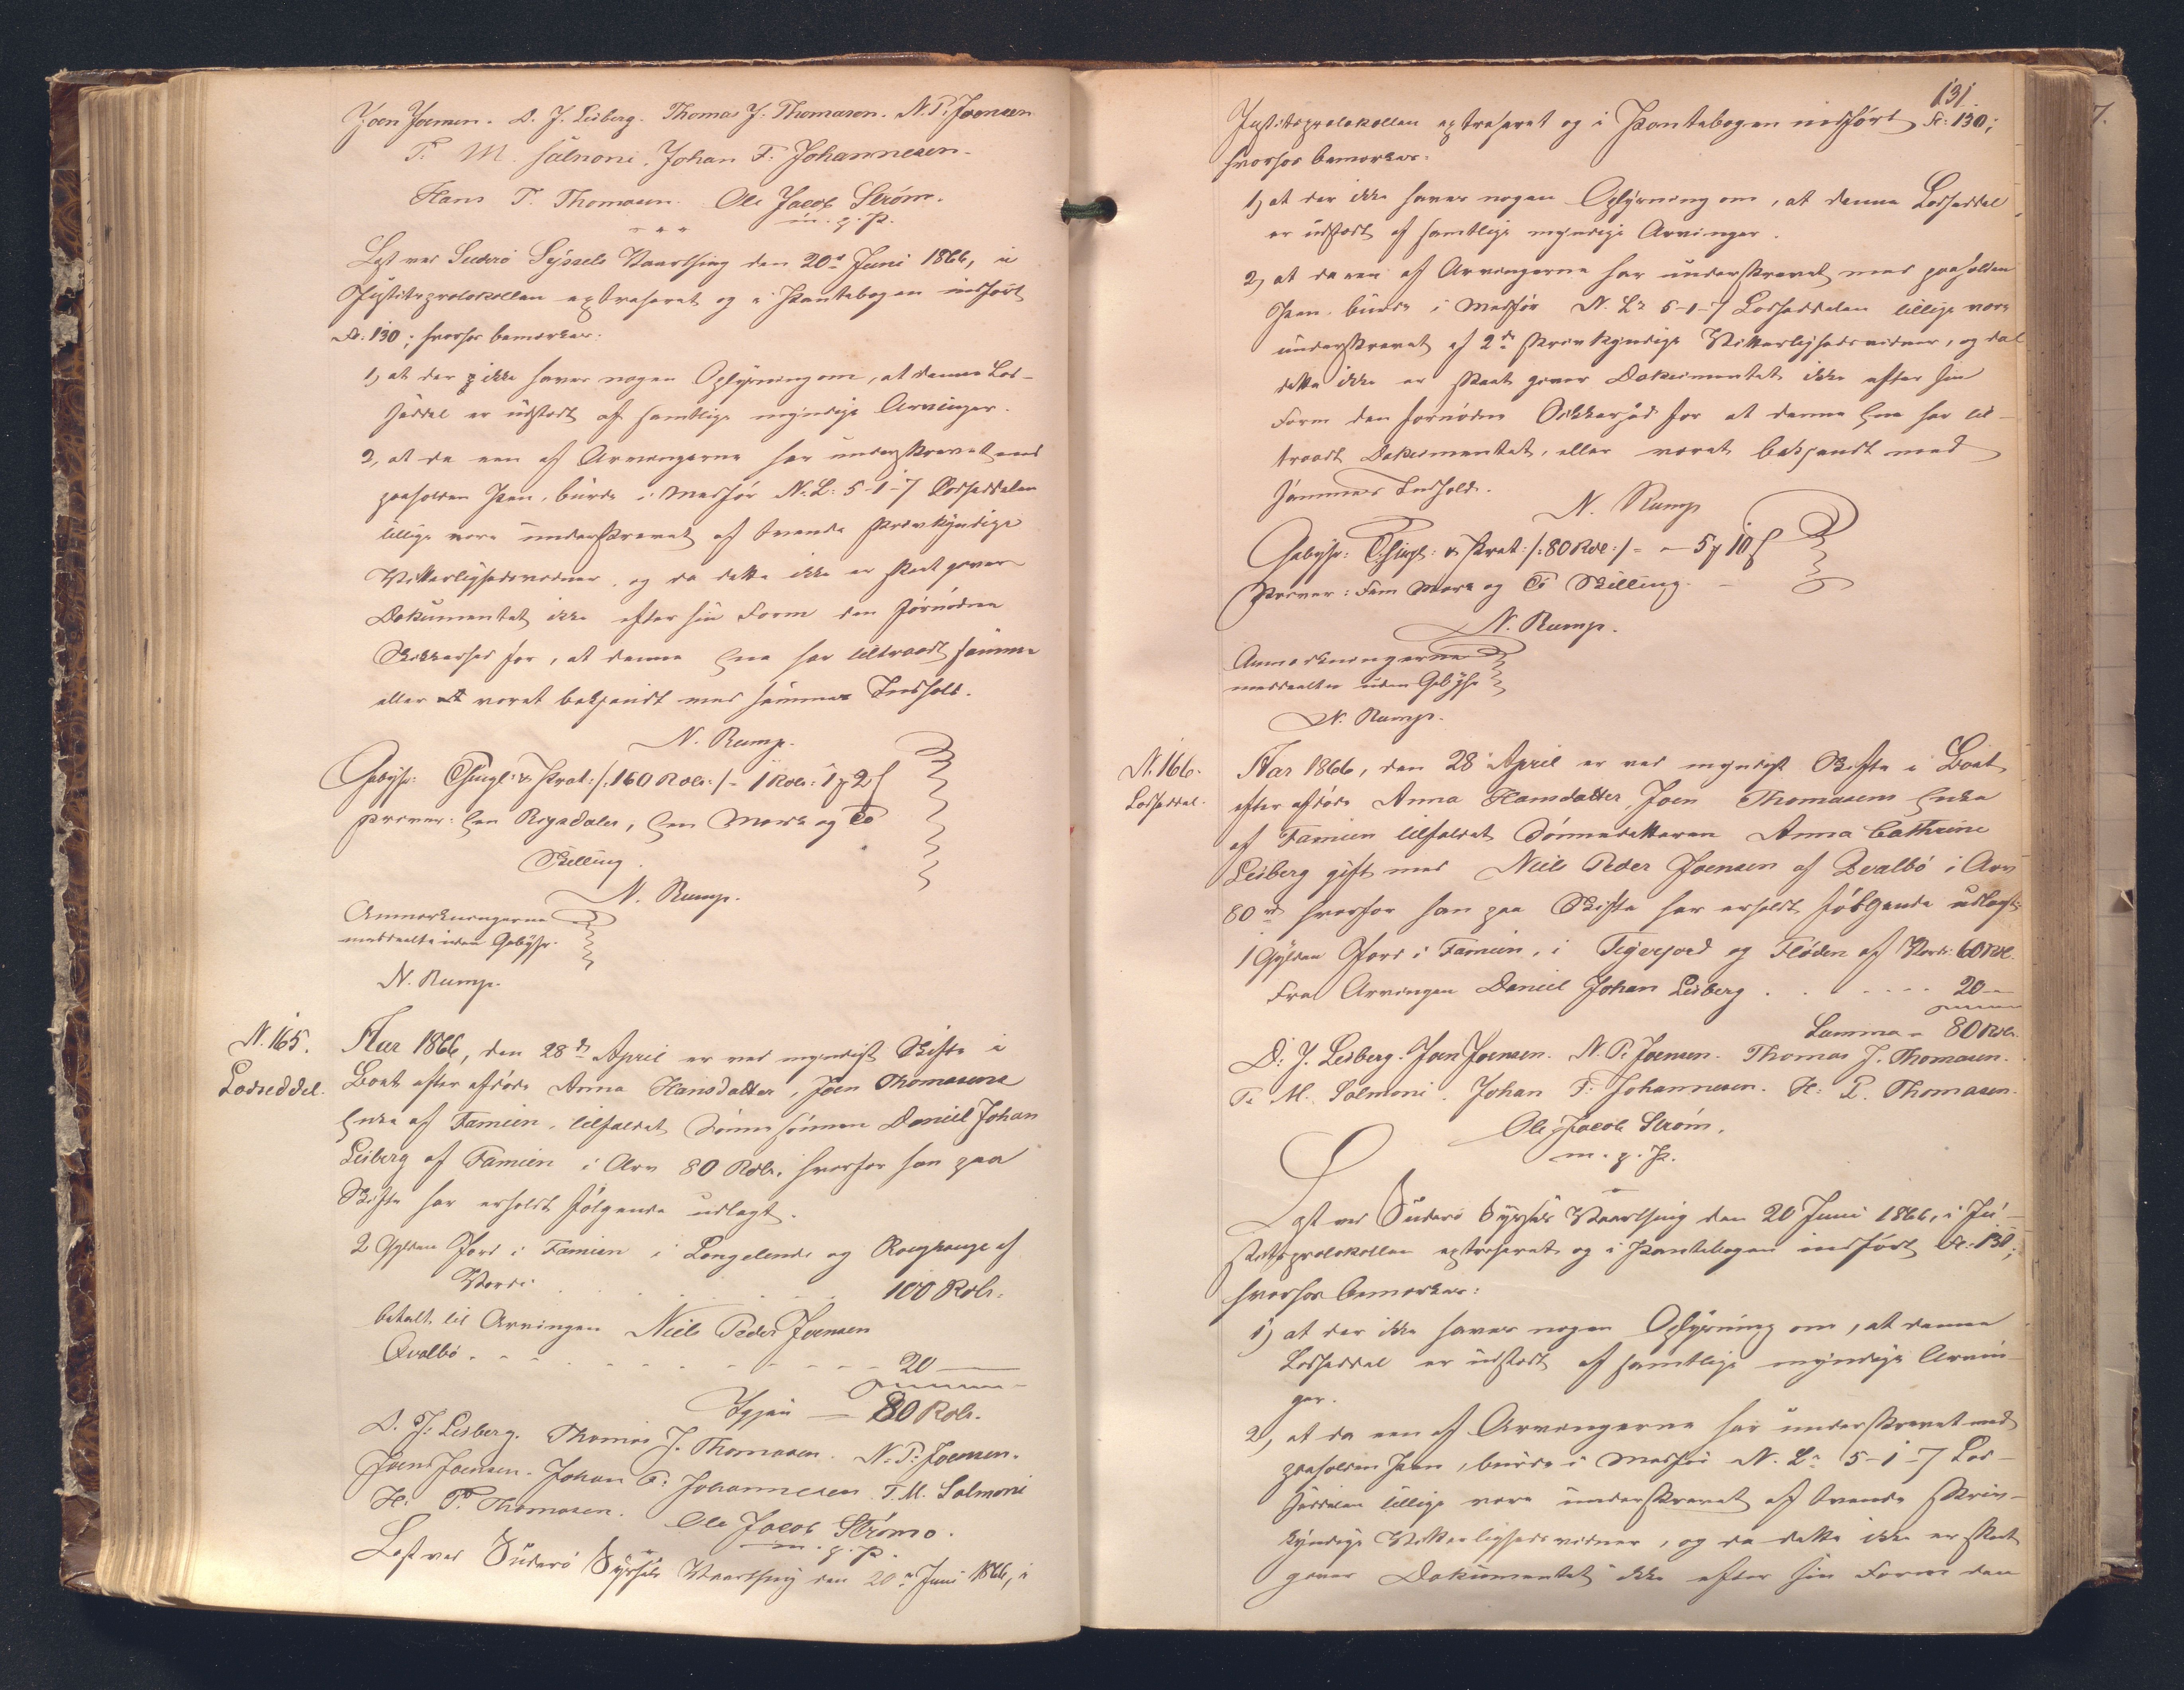 Joen Joensen. D. J. Leiberg. Thomas J. Thomasen. N. P. Joensen
T. M. Salmoni. Johan F. Johannesen.
Hans P. Thomasen. Ole Jacob Strøm.
m. p. p.
Læst ved Suderö Syssels Vaarthing den 20de Juni 1866, i
Justitsprotokollen extraheret og i Pantebogen indført
Fo: 130; hvorhos bemærkes:
1, at der ikke haves nogen Oplysning om, at denne Lod-
seddel er udstedt af samtlige myndige Arvinger.
2, at da een af Arvingerne har underskrevet med
paaholden Pen, burde i Medfør N. L: 5-1-7 Lodseddelen
tillige være underskrevet af tvende skrivkyndige
Vitterlighedsvidner, og da dette ikke er skeet giver
Dokumentet ikke efter sin Form den fornødne
Sikkerhed for, at denne Ene har tiltraadt samme
eller været bekjendt med sammes Indhold.
N. Rump.
Gebyhr: Thingl: & Prot: /: 160 Rdlr: / - 1 Rdlr: 1 2
skriver: Een Rigsdaler, Een Mark og To
Skilling.
N. Rump.
Anmærkningerne
meddeelte uden Gebyhr.
N. Rump.
N. 165.
Lodseddel.
Aar 1866, den 28de April er ved myndigt Skifte i
Boet efter afdøde Anna Hansdatter, Joen Thomasens
Enke af Famien, tilfaldet Sönnesönnen Daniel Johan
Leiberg af Famien i Arv 80 Rdlr. hvorfor han paa
Skifte har erholdt følgende udlagt.
2 Gylden Jord i Famien i Longelende og af
Værdi . . . . . . 100 Rdlr.
betalt til Arvingen Niels Peder Joensen
Qvalbö . . . . . . 20
Igjen — 80 Rdlr.
D. J. Leiberg. Thomas J. Thomasen. N. P. Joensen.
Joen Joensen. Johan F. Johannesen T. M. Salmoni
H. P. Thomasen. Ole Jacob Strømo.
m. p. p.
Læst ved Suderö Syssels Vaarthing den 20de Juni 1866, i
131.
Justitsprotokollen extraheret og i Pantebogen indført Fo: 130;
hvorhos bemærkes:
1, at der ikke haves nogen Oplysning om, at denne Lodseddel
er udstedt af samtlige myndige Arvinger.
2, at da een af Arvingerne har underskrevet med paaholden
Pen burde i Medfør N. Ls 5-1-7 Lodseddelen tillige være
underskrevet af 2de skrivkyndige Vitterlighedsvidner, og da
dette ikke er skeet giver Dokumentet ikke efter sin
Form den fornødne Sikkerhed for at denne Ene har til-
traadt Dokumentet, eller været bekjendt med
sammes Indhold.
N. Rump
Gebyhr: Thingl: & Prot: /: 80 Rdl: / - - 5 10
skriver: Fem Mark og Ti Skilling.
N. Rump.
Anmærkningerne
meddeeltes uden Gebyhr
N. Rump.
N. 166.
Lodseddel.
Aar 1866, den 28 April er ved myndigt Skifte i Boet
efter afdøde Anna Hansdatter, Joen Thomasens Enke
af Famien tilfaldet Sönnedatteren Anna Cathrine
Leiberg gift med Niels Peder Joensen af Qvalbö i Arv
80 rd hvorfor han paa Skifte har erholdt følgende udlagt:
1 Gylden Jord i Famien, i og Fløden af Værdi: 60 Rdl.
Fra Arvingen Daniel Johan Leiberg . . . . . 20
Summa - 80 Rdl.
D. J. Leiberg. Joen Joensen. N. P. Joensen. Thomas J. Thomasen.
T. M. Salmoni. Johan F. Johannesen. H. P. Thomasen.
Ole Jacob Strøm.
m. p. p.
Læst ved Suderö Syssels Vaarthing den 20 Juni 1866, i Ju-
stitsprotokollen extraheret og i Pantebogen indført Fo: 130;
hvorhos bemærkes:
1, at der ikke haves nogen Oplysning om, at denne
Lodseddel er udstedt af samtlige myndige Arvin-
ger.
2, at da een af Arvingerne har underskrevet med
paaholden Pen, burde i Medfør N. Ls 5-1-7 Lod-
seddelen tillige være underskrevet af tvende skriv-
kyndige Vitterlighedsvidner, og da dette ikke er skeet
giver Dokumentet ikke efter sin Form den